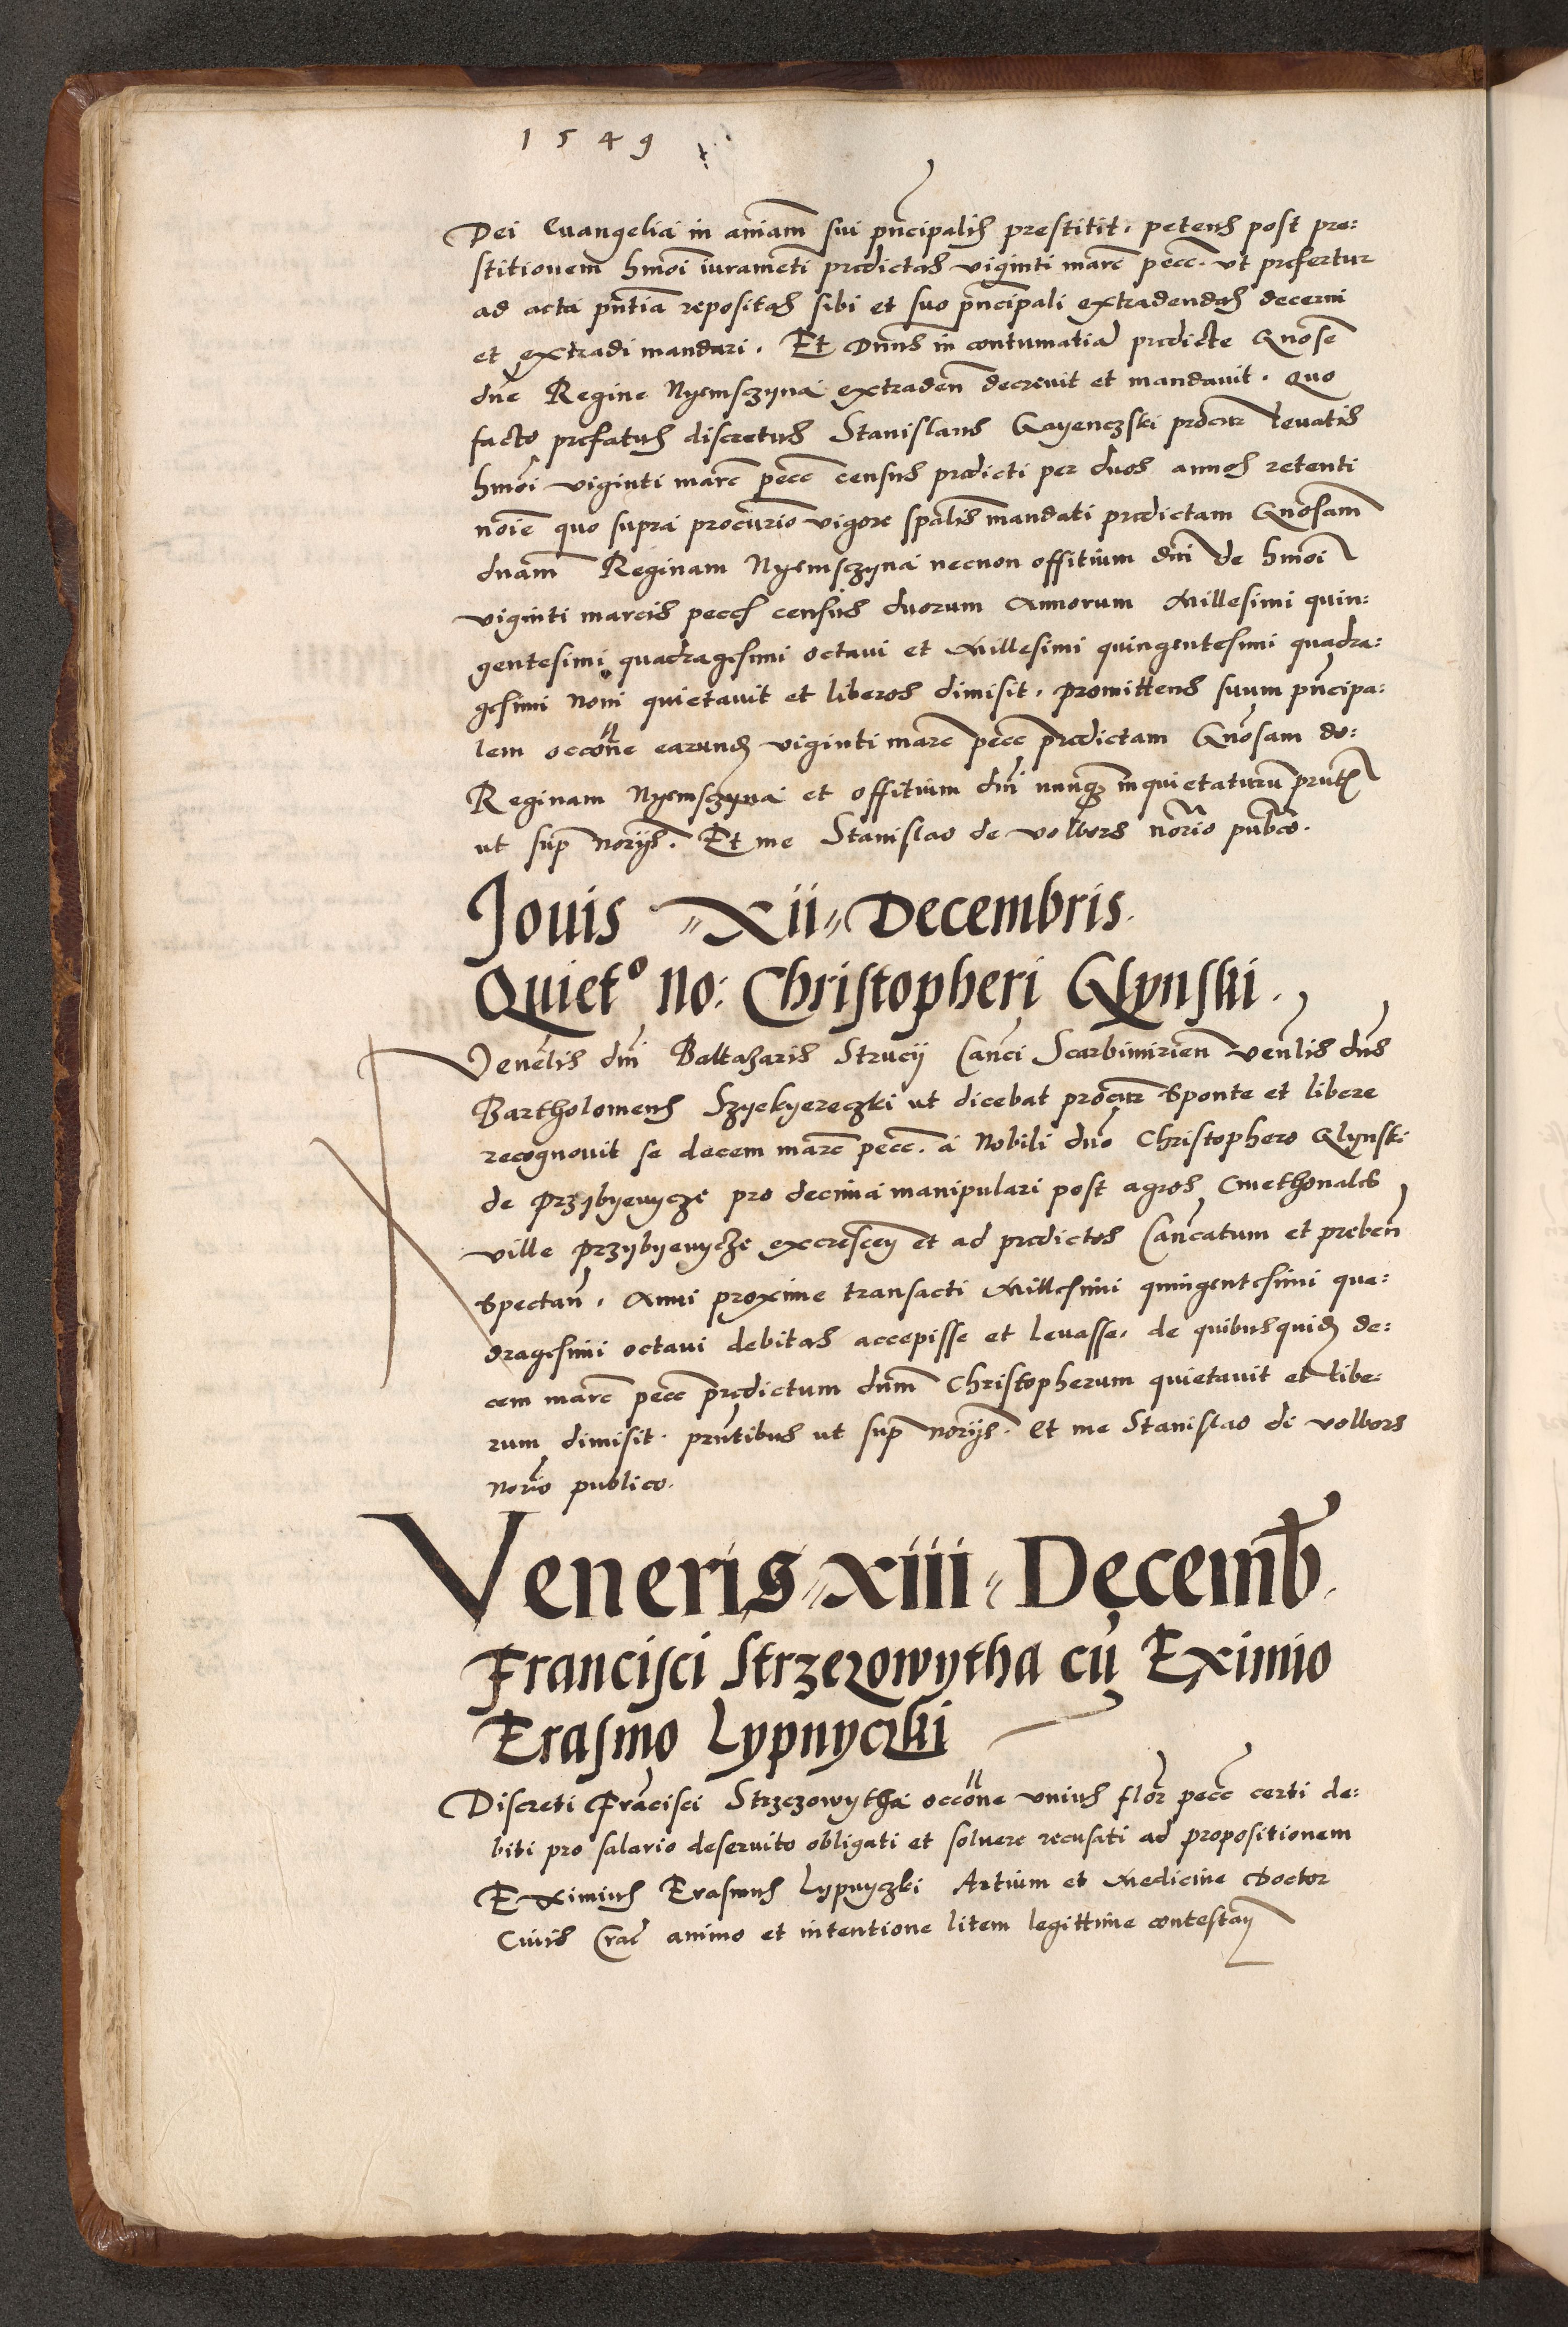 1549
Dei Euangelia in aniam sui pncipalis prestitit. petens post pre:
stitionem hmoi iuramenti predictas viginti marc pecc. ut prefertur
ad acta pntia repositas sibi et suo pncipali extradendas decerni
et extradi mandari. Et Dnus in contumatia predicte Gnose
dne Regine Nyemsczyna extraden decrevit et mandavit. Quo
facto prefatus discretus Stanislaus Gayenczski procur levatis
hmoi viginti marc pecc census predicti per duos annos retenti
noie quo supra procurio vigore spalis mandati predictam Gnosam
dnam Reginam Nyemsczyna necnon offitium dni de hmoi
viginti marcis pecc census duorum Annorum Millesimi quin:
gentesimi quadragesimi octaui et Millesimi quingentesimi quadra:
gesimi noni quietauit et liberos dimisit. promittens suum pncipa:
lem occone earund viginti marc pecc predictam Gnosam do:
Reginam Nyemsczyna et offitium dni nunq inquietaturu pntt
ut sup norijs. Et me Stanislao de volbors norio publco.
Jouis xii Decembris.
Quiet⁰ No: Christopheri Glynski.
Venelis dni Baltazaris Strucij Canci Scarbimirien venlis dns
Bartholomeus Szyekyereczki ut dicebat procur sponte et libere
recognouit se decem marc pecc. a Nobili dno Christophero Glynski
de przybyenycze pro decima manipulari post agros Cmethonales
ville przybyenycze excrescen et ad predictos Cancatum et preben
spectan. Anni proxime transacti Millesimi quingentesimi qua:
dragesimi octaui debitas accepisse et levasse. de quibusquid de:
cem marc pecc predictum dnm Christopherum quietauit et libe:
rum dimisit. prntibus ut sup norijs. Et me Stanislao de volbors
norio publico.
Veneris xiii Decemb.
Francisci Strzezowytha cu Eximio
Erasmo Lypnyczki
Discreti Francisci Strzezowytha occone unius flor pecc certi de:
biti pro salario deseruito obligati et soluere recusati ad propositionem
Eximius Erasmus Lypnyczki Artium et Medicine Doctor
Civis Crac animo et intentione litem legittime contestan